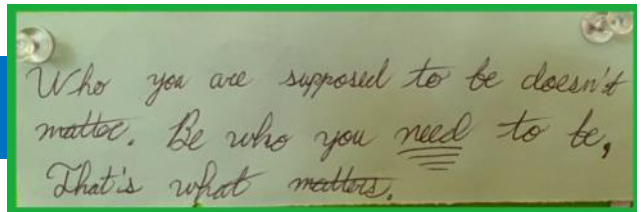 Who you are supposed to be doesn't
matter. Be who you need to be,
That's what matters.